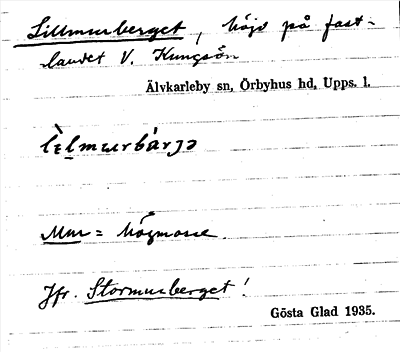 Lillmurberget, höjd på fast-
landet V. Kungsön
Älvkarleby sn, Örbyhus hd, Upps. l.
Mur = högmosse.
Jfr. Stormurberget!
Gösta Glad 1935.